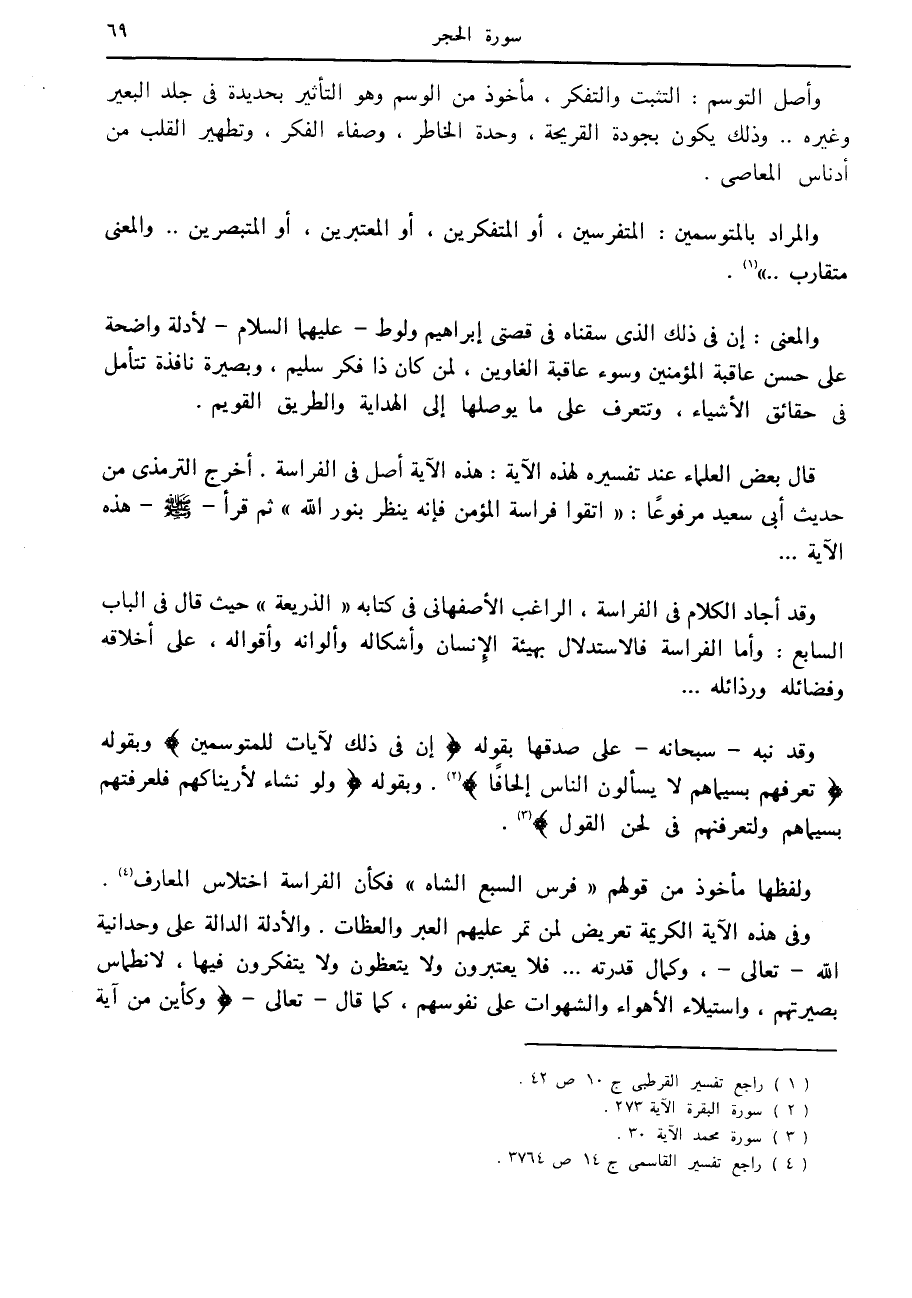 سورة الحجر ٦٩
وأصل التوسم : التثبت والتفكر ، مأخوذ من الوسم وهو التأثير بحديدة فى جلد البعير
وغيره .. وذلك يكون بجودة القريحة ، وحدة الخاطر ، وصفاء الفكر ، وتطهير القلب من
أدناس المعاصى .
والمراد بالمتوسمين : المتفرسين ، أو المتفكرين ، أو المعتبرين ، أو المتبصرين .. والمعنى
متقارب ..»(١) .
والمعنى : إن فى ذلك الذى سقناه فى قصتى إبراهيم ولوط – عليهما السلام – لأدلة واضحة
على حسن عاقبة المؤمنين وسوء عاقبة الغاوين ، لمن كان ذا فكر سليم ، وبصيرة نافذة تتأمل
فى حقائق الأشياء ، وتتعرف على ما يوصلها إلى الهداية والطريق القويم .
قال بعض العلماء عند تفسيره لهذه الآية : هذه الآية أصل فى الفراسة . أخرج الترمذى من
حديث أبى سعيد مرفوعًا : « اتقوا فراسة المؤمن فإنه ينظر بنور الله » ثم قرأ – ﷺ – هذه
الآية ...
وقد أجاد الكلام فى الفراسة ، الراغب الأصفهانى فى كتابه « الذريعة » حيث قال فى الباب
السابع : وأما الفراسة فالاستدلال بهيئة الإِنسان وأشكاله وألوانه وأقواله ، على أخلاقه
وفضائله ورذائله ...
وقد نبه – سبحانه – على صدقها بقوله ﴿ إن فى ذلك لآيات للمتوسمين ﴾ وبقوله
﴿ تعرفهم بسيماهم لا يسألون الناس إلحافًا ﴾(٢) . وبقوله ﴿ ولو نشاء لأريناكهم فلعرفتهم
بسيماهم ولتعرفنهم فى لحن القول ﴾(٣) .
ولفظها مأخوذ من قولهم « فرس السبع الشاه » فكأن الفراسة اختلاس المعارف(٤) .
وفى هذه الآية الكريمة تعريض لمن تمر عليهم العبر والعظات . والأدلة الدالة على وحدانية
الله – تعالى – ، وكمال قدرته ... فلا يعتبرون ولا يتعظون ولا يتفكرون فيها ، لانطماس
بصيرتهم ، واستيلاء الأهواء والشهوات على نفوسهم ، كما قال – تعالى – ﴿ وكأين من آية
( ١ ) راجع تفسير القرطبى ج ١٠ ص ٤٢ .
( ٢ ) سورة البقرة الآية ٢٧٣ .
( ٣ ) سورة محمد الآية ٣٠ .
( ٤ ) راجع تفسير القاسمى ج ١٤ ص ٣٧٦٤ .